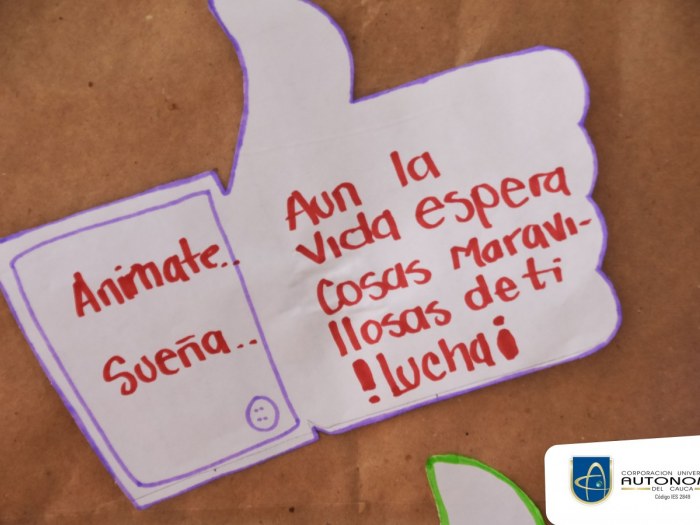 Animate..
Sueña..
Aun la
vida espera
cosas maravi-
llosas de ti
!Lucha¡
CORPORACIÓN UNIVER
AUTONOM
DEL CAUCA
Código IES 2849